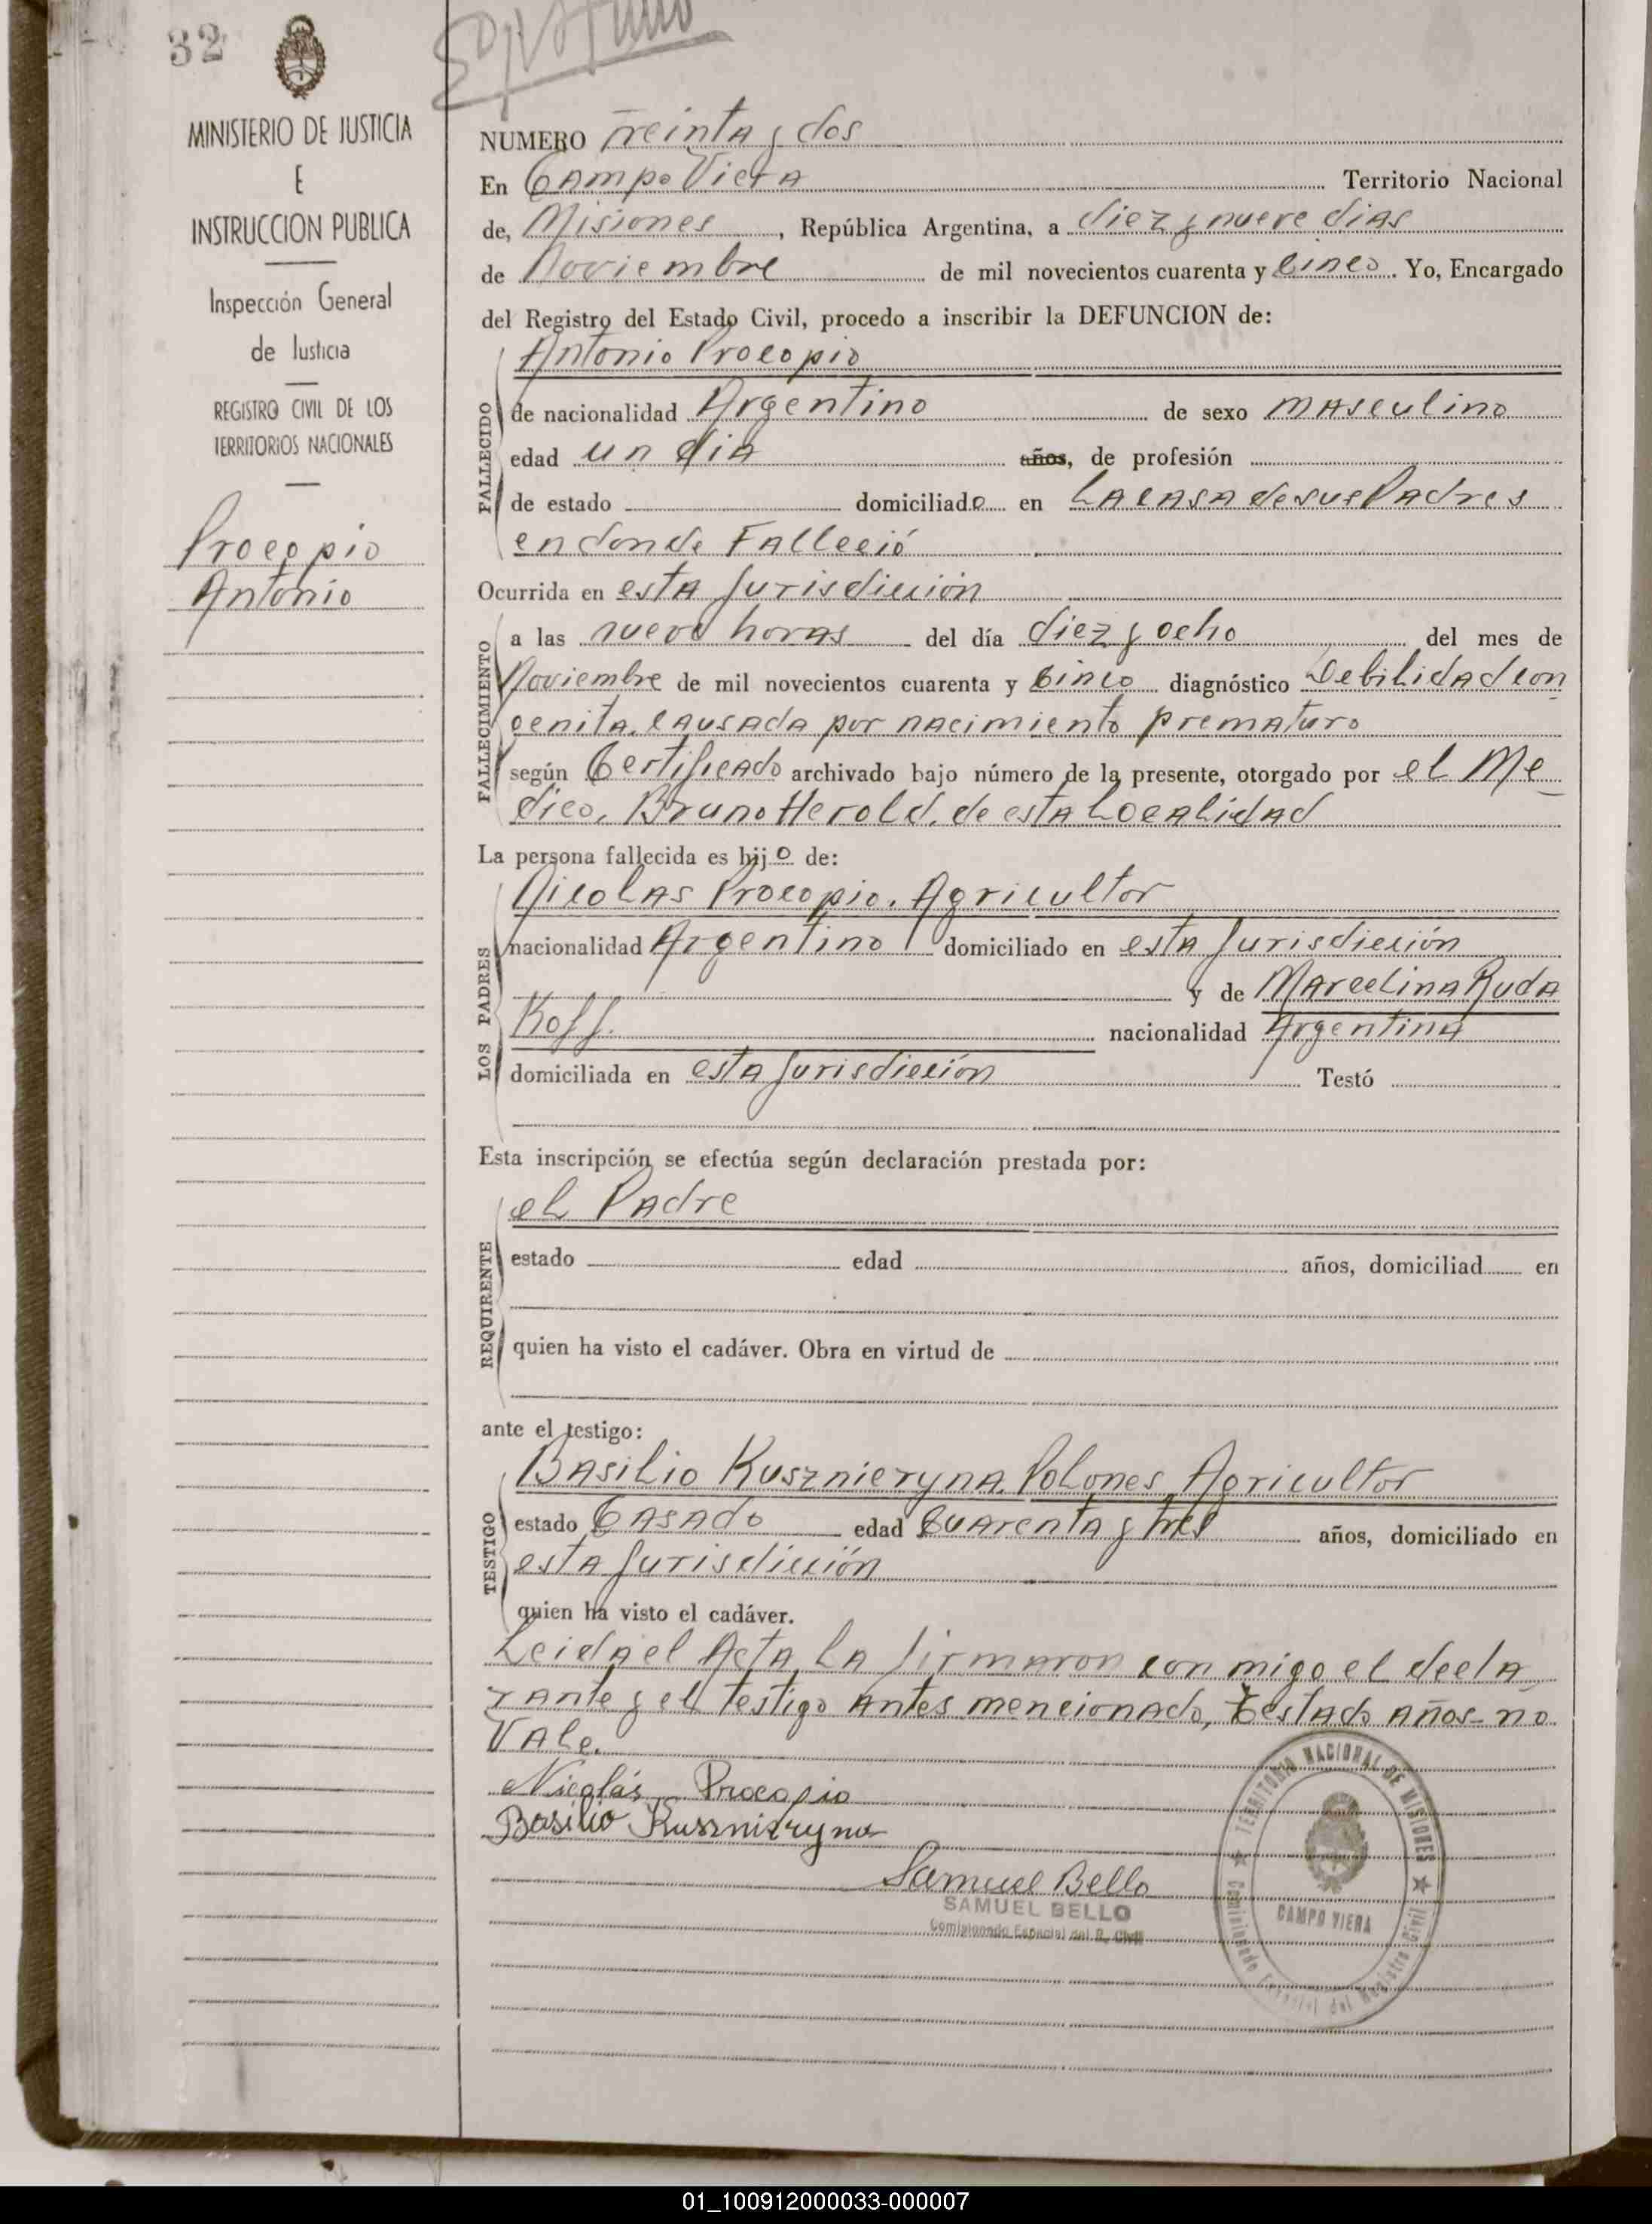 32
MINISTERIO DE JUSTICIA
E
INSTRUCCION PUBLICA
Inspección General
de Justicia
REGISTRO CIVIL DE LOS
TERRITORIOS NACIONALES
Procopio
Antonio
NUMERO Treinta y dos
En Campo Viera Territorio Nacional
de, Misiones, República Argentina, a diez y nueve dias
de Noviembre de mil novecientos cuarenta y Cinco. Yo, Encargado
del Registro del Estado Civil, procedo a inscribir la DEFUNCION de:
Antonio Procopio
FALLECIDO
de nacionalidad Argentino de sexo masculino
edad un dia años, de profesión
de estado domiciliado en La casa de sus Padres
en donde Falleció
Ocurrida en esta Jurisdicción
FALLECIMIENTO
a las nueve horas del día diez y ocho del mes de
Noviembre de mil novecientos cuarenta y Cinco diagnóstico Debilidad con
genita, causada por nacimiento prematuro
según Certificado archivado bajo número de la presente, otorgado por el Me-
dico, Bruno Herold, de esta Localidad
La persona fallecida es hijo de:
LOS PADRES
Nicolas Procopio, Agricultor
nacionalidad Argentino domiciliado en esta Jurisdicción
y de Marcelina Ruda
Koff. nacionalidad Argentina
domiciliada en esta Jurisdicción Testó
Esta inscripción se efectúa según declaración prestada por:
REQUIRENTE
el Padre
estado edad años, domiciliad en
quien ha visto el cadáver. Obra en virtud de
ante el testigo:
TESTIGO
Basilio Kusznieryna, Polones, Agricultor
estado Casado edad Cuarenta y tres años, domiciliado en
esta Jurisdicción
quien ha visto el cadáver.
Leida el Acta, la firmaron con migo el decla
rante y el testigo antes mencionado, Testado años-no
Vale.
Nicolás Procopio
Basilio Kusznieryna
Samuel Bello
SAMUEL BELLO
Comisionado Especial del R. Civil
TERRITORIO NACIONAL DE MISIONES
CAMPO VIERA
Comisionado Especial del Registro Civil
01_100912000033-000007